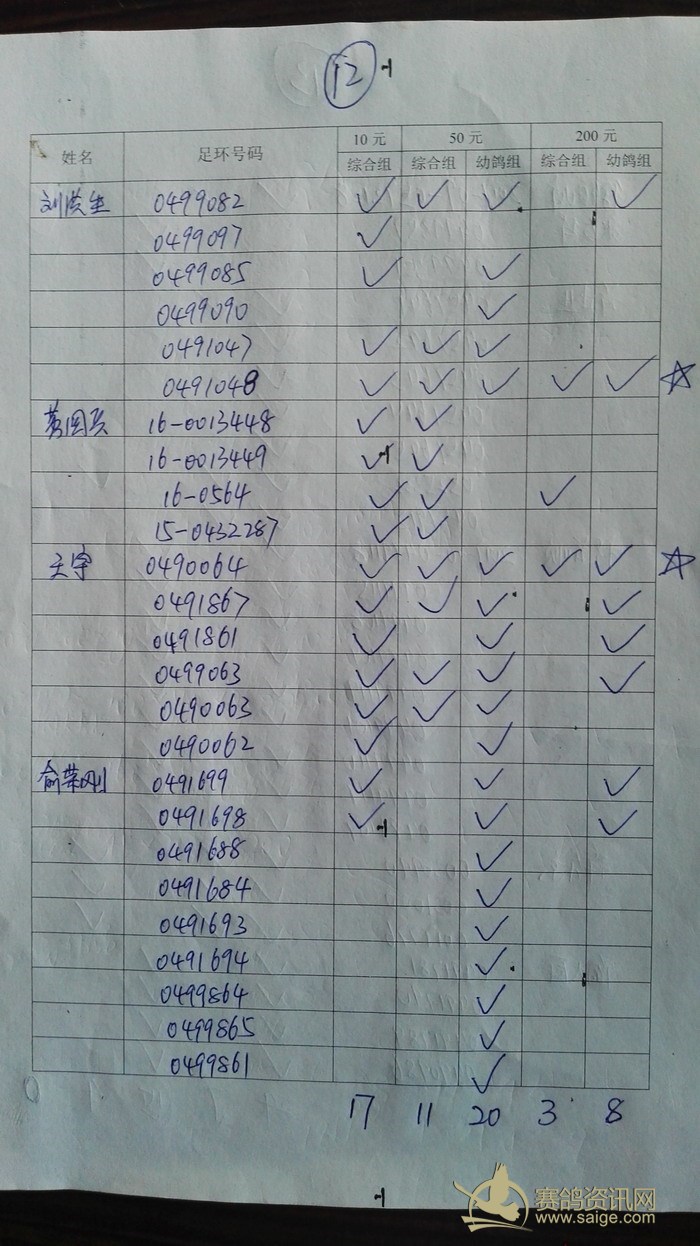 12
姓名 足环号码 10元 50元 200元
综合组 综合组 幼鸽组 综合组 幼鸽组
刘洪生 0499082 ✓ ✓ ✓ ✓
0499097 ✓
0499085 ✓ ✓
0499090 ✓
0491047 ✓ ✓ ✓
0491048 ✓ ✓ ✓ ✓ ✓ ☆
16-0013448 ✓ ✓
16-0013449 ✓ ✓
16-0564 ✓ ✓ ✓
15-0432287 ✓ ✓
王宇 0490064 ✓ ✓ ✓ ✓ ✓ ☆
0491867 ✓ ✓ ✓ ✓
0491861 ✓ ✓ ✓
0499063 ✓ ✓ ✓ ✓
0490063 ✓ ✓ ✓
0490062 ✓ ✓
俞荣刚 0491699 ✓ ✓ ✓
0491698 ✓ ✓ ✓
0491688 ✓
0491684 ✓
0491693 ✓
0491694 ✓
0499864 ✓
0499865 ✓
0499861 ✓
17 11 20 3 8
赛鸽资讯网
www.saige.com